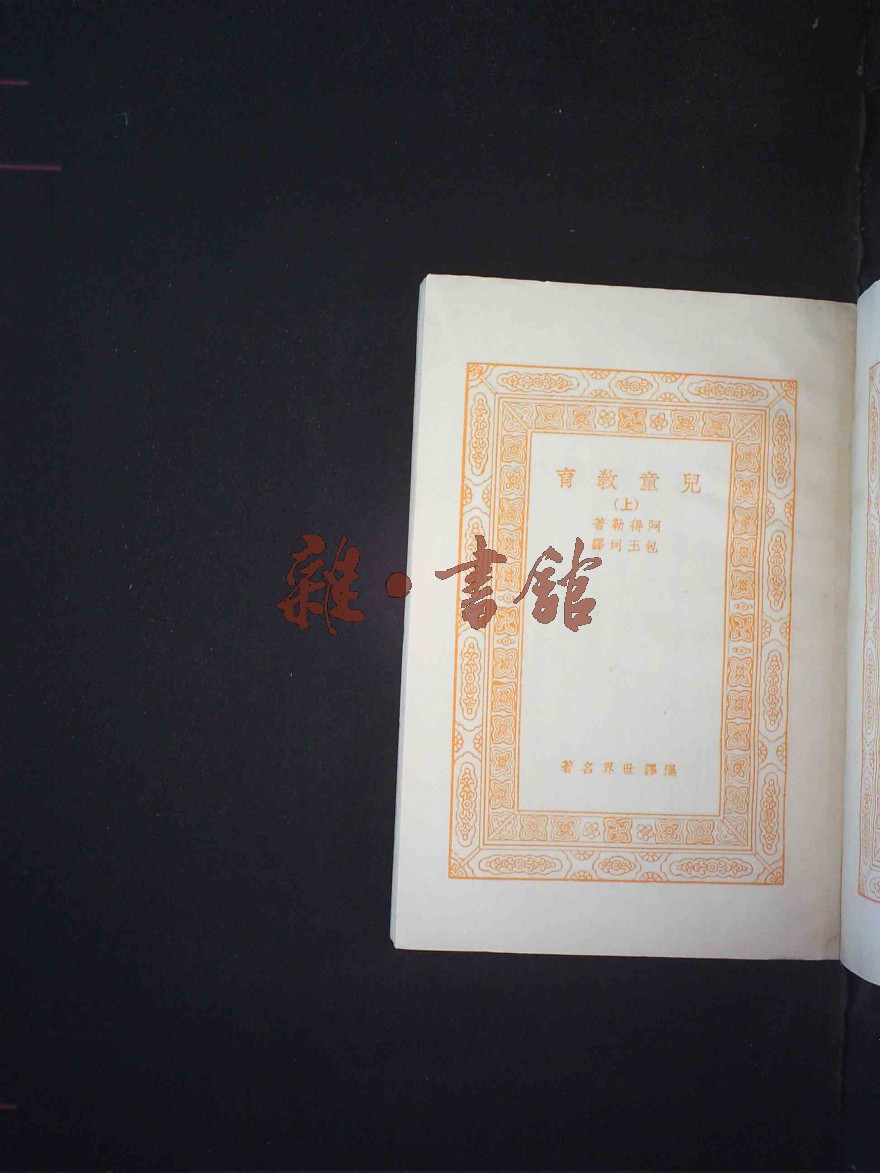 兒童教育
(上)
阿得勒著
包玉珂譯
雜·書館
漢譯世界名著